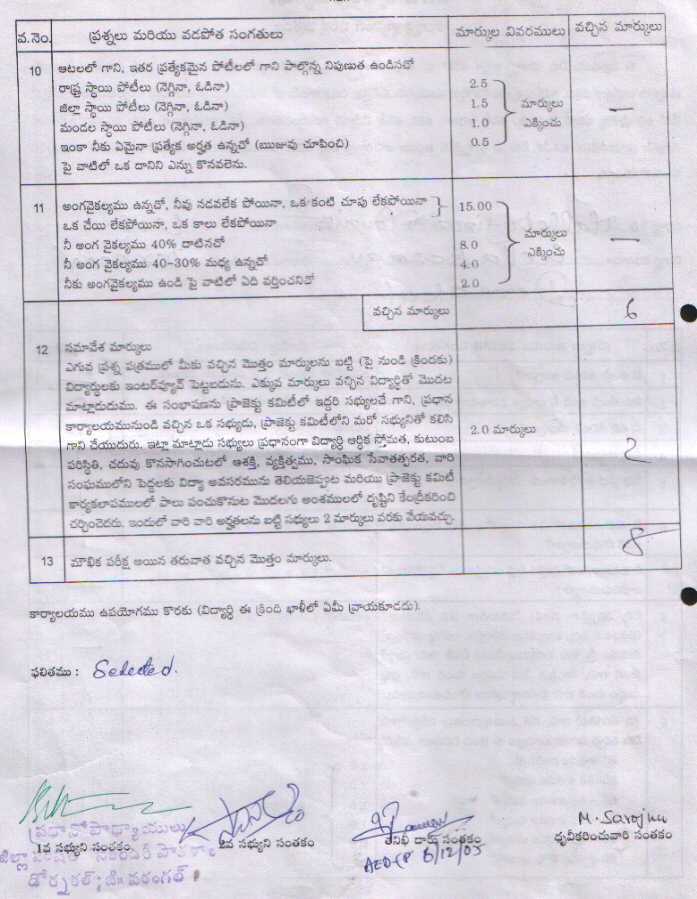 వ.నెం. ప్రశ్నలు మరియు వడపోత సంగతులు మార్కుల వివరములు వచ్చిన మార్కులు
10 ఆటలలో గాని, ఇతర ప్రత్యేకమైన పోటీలలో గాని పాల్గొన్న నిపుణత ఉండినచో
రాష్ట్ర స్థాయి పోటీలు (నెగ్గినా, ఓడినా) 2.5
జిల్లా స్థాయి పోటీలు (నెగ్గినా, ఓడినా) 1.5 మార్కులు —
మండల స్థాయి పోటీలు (నెగ్గినా, ఓడినా) 1.0 ఎక్కించు
ఇంకా నీకు ఏమైనా ప్రత్యేక అర్హత ఉన్నచో (ఋజువు చూపించి) 0.5
పై వాటిలో ఒక దానిని ఎన్ను కొనవలెను.
11 అంగవైకల్యము ఉన్నచో, నీవు నడవలేక పోయినా, ఒక కంటి చూపు లేకపోయినా 15.00
ఒక చేయి లేకపోయినా, ఒక కాలు లేకపోయినా మార్కులు
నీ అంగ వైకల్యము 40% దాటినచో 8.0 ఎక్కించు —
నీ అంగ వైకల్యము 40-30% మధ్య ఉన్నచో 4.0
నీకు అంగవైకల్యము ఉండి పై వాటిలో ఏది వర్తించనిచో 2.0
వచ్చిన మార్కులు 6
12 సమావేశ మార్కులు
ఎగువ ప్రశ్న పత్రములో మీకు వచ్చిన మొత్తం మార్కులను బట్టి (పై నుండి క్రిందకు)
విద్యార్థులకు ఇంటర్‌వ్యూన్ పెట్టబడును. ఎక్కువ మార్కులు వచ్చిన విద్యార్థితో మొదట
మాట్లాడుదుము. ఈ సంభాషణను ప్రాజెక్టు కమిటీలో ఇద్దరి సభ్యులచే గాని, ప్రధాన
కార్యాలయమునుండి వచ్చిన ఒక సభ్యుడు, ప్రాజెక్టు కమిటీలోని మరో సభ్యునితో కలిసి
గాని చేయుదురు. ఇట్లా మాట్లాడు సభ్యులు ప్రధానంగా విద్యార్థి ఆర్థిక స్తోమత, కుటుంబ 2.0 మార్కులు
పరిస్థితి, చదువు కొనసాగించుటలో ఆశక్తి, వ్యక్తిత్వము, సాంఘిక సేవాతత్పరత, వారి 2
సంఘములోని పెద్దలకు విద్యా అవసరమును తెలియజెప్పుట మరియు ప్రాజెక్టు కమిటీ
కార్యకలాపములలో పాలు పంచుకొనుట మొదలగు అంశములలో దృష్టిని కేంద్రీకరించి
చర్చించెదరు. ఇందులో వారి వారి అర్హతలను బట్టి సభ్యులు 2 మార్కులు వరకు వేయవచ్చు.
13 మౌఖిక పరీక్ష అయిన తరువాత వచ్చిన మొత్తం మార్కులు. 8
కార్యాలయము ఉపయోగము కొరకు (విద్యార్థి ఈ క్రింది ఖాళీలో ఏమీ వ్రాయకూడదు).
ఫలితము : Selected.
M. Sarojini
ప్రధానోపాధ్యాయులు
1వ సభ్యుని సంతకం 2వ సభ్యుని సంతకం తనిఖీ దారు సంతకం ధృవీకరించువారి సంతకం
జిల్లా
6/12/05
డోర్నకల్, జి॥ వరంగల్